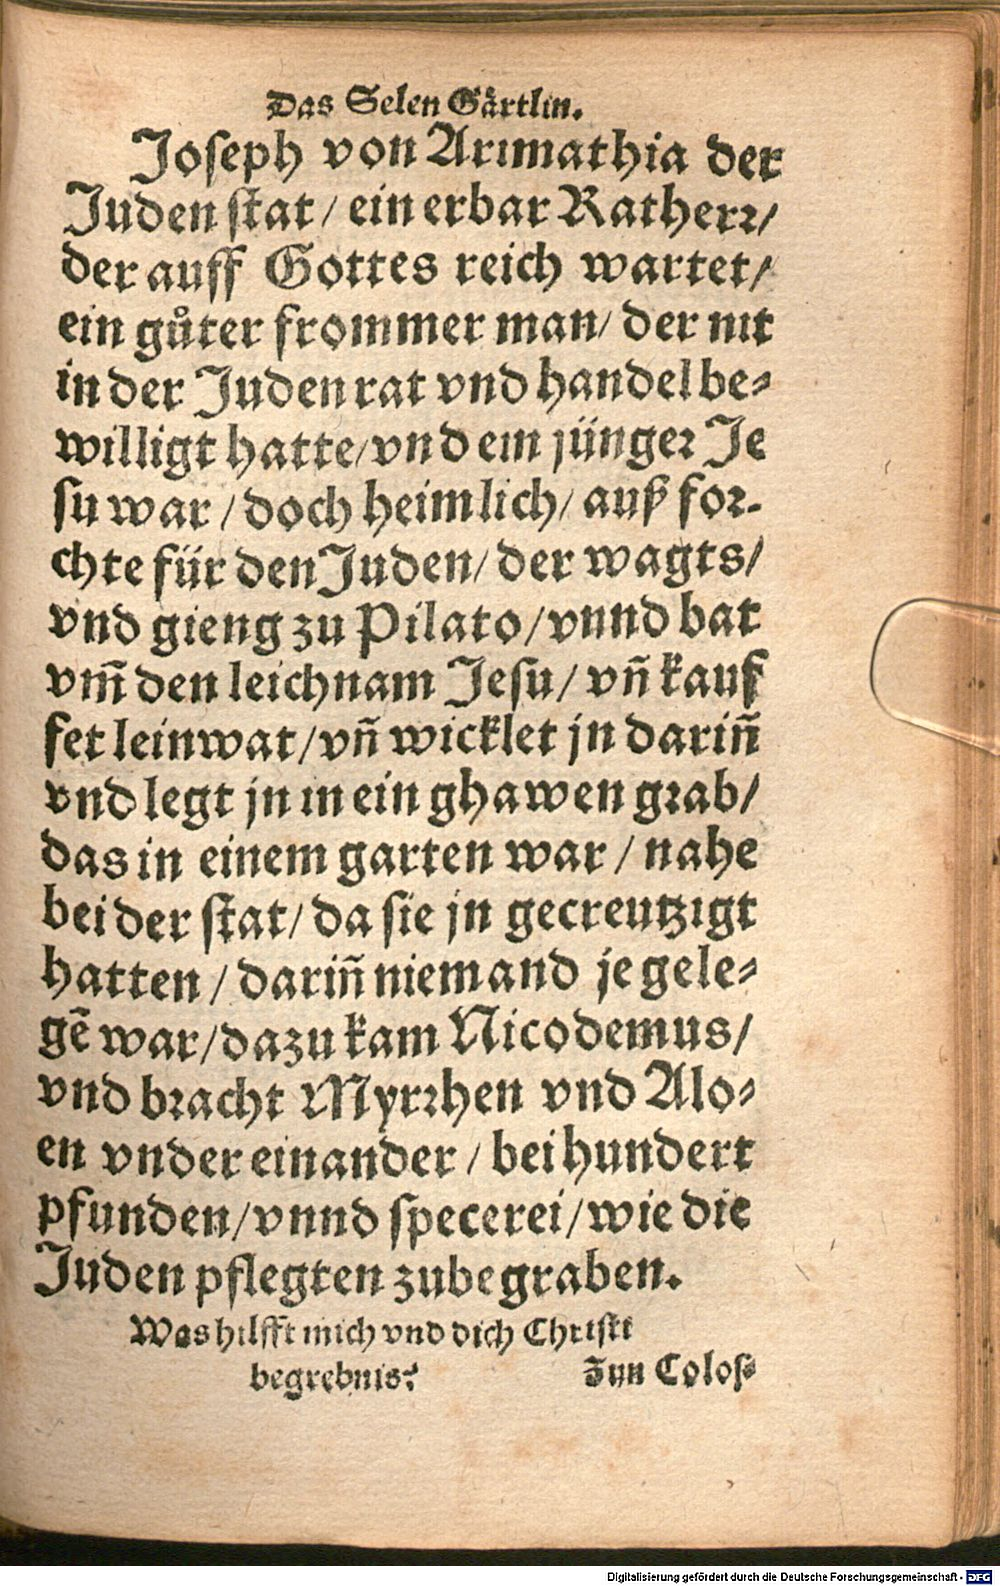 Das Selen Gärtlin.
Joseph von Arimathia der
Juden stat / ein erbar Ratherr /
der auff Gottes reich wartet /
ein gůter frommer man / der nit
in der Juden rat vnd handel be-
willigt hatte / vnd ein jünger Je
su war / doch heimlich / auß for-
chte für den Juden / der wagts /
vnd gieng zu Pilato / vnnd bat
vm̃ den leichnam Jesu / vñ kauf
fet leinwat / vñ wicklet jn dariñ
vnd legt jn in ein ghawen grab /
das in einem garten war / nahe
bei der stat / da sie jn gecreutzigt
hatten / dariñ niemand je gele-
gẽ war / dazu kam Nicodemus /
vnd bracht Myrrhen vnd Alo-
en vnder einander / bei hundert
pfunden / vnnd specerei / wie die
Juden pflegten zubegraben.
Was hilfft mich vnd dich Christi
begrebnis?
Zun Colos-
Digitalisierung gefördert durch die Deutsche Forschungsgemeinschaft - DFG